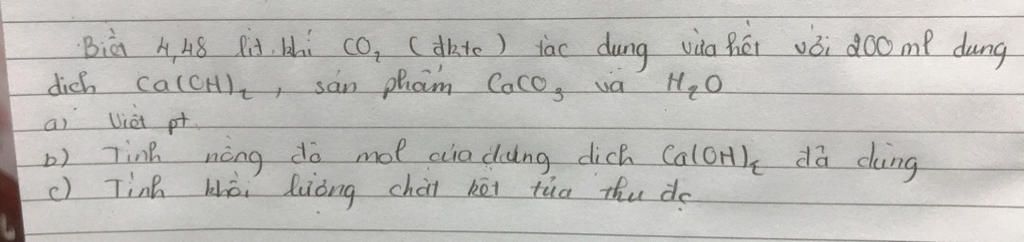 Biết 4,48 lít khí CO₂ (đktc) tác dụng vừa hết với 200 ml dung
dịch Ca(OH)₂, sản phẩm CaCO₃ và H₂O
a) Viết pt
b) Tính nồng độ mol của dung dịch Ca(OH)₂ đã dùng
c) Tính khối lượng chất kết tủa thu đc